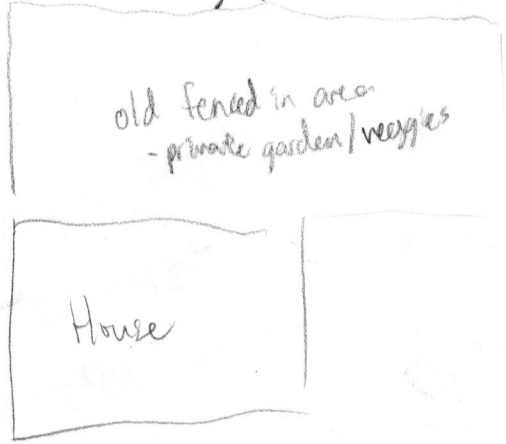 old fenced in area
- private garden/veggies
House